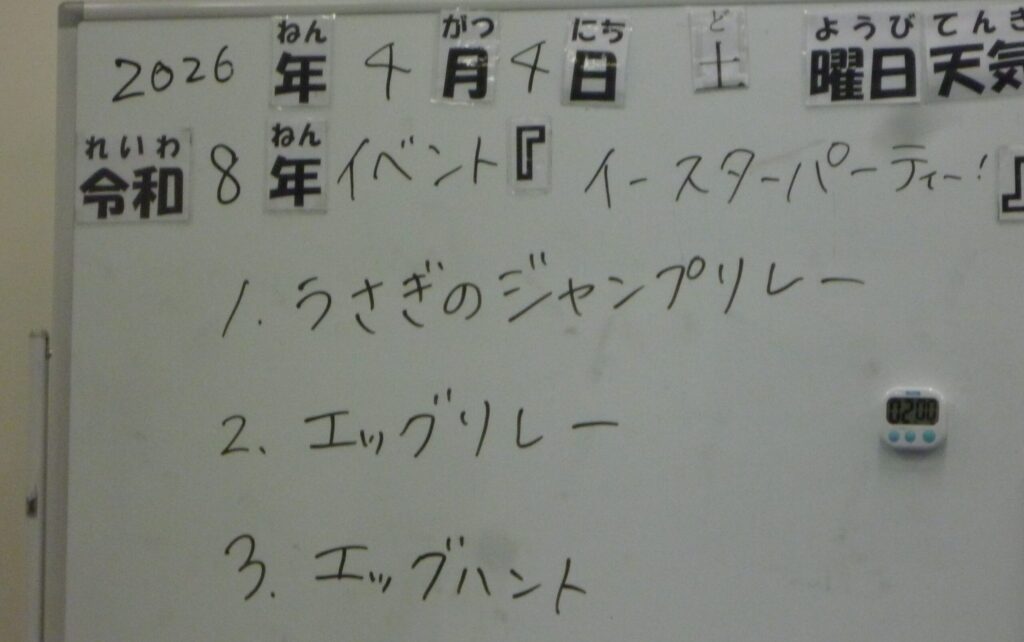 2026年4月4日 土曜日天気
ねん がつ にち ど ようび てんき
令和8年イベント『イースターパーティー!』
れいわ ねん
1. うさぎのジャンプリレー
2. エッグリレー
3. エッグハント
02:00